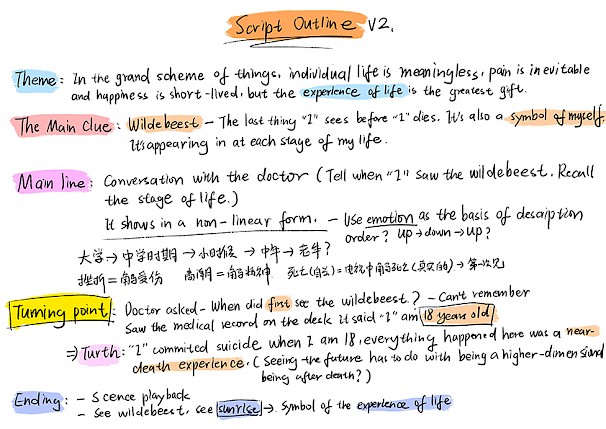 Script Outline V2.
Theme: In the grand scheme of things, individual life is meaningless, pain is inevitable
and happiness is short-lived, but the experience of life is the greatest gift.
The Main Clue: Wildebeest - The last thing "I" sees before "I" dies. It's also a symbol of myself.
It's appearing in at each stage of my life.
Main line: Conversation with the doctor (Tell when "I" saw the wildebeest. Recall
the stage of life.)
It shows in a non-linear form. - Use emotion as the basis of description
order? Up → down → Up?
大学 → 中学时期 → 小时候 → 中年 → 老年?
挫折 = 角马受伤 高潮 = 角马 死亡(自杀) = 电视中角马死亡(真实的) → 第一次见
Turning point: Doctor asked - When did first see the wildebeest? - Can't remember
Saw the medical record on the desk it said "I" am 18 years old
⇒ Turth: "I" commited suicide when I am 18, everything happened here was a near-
death experience. (Seeing the future has to do with being a higher-dimensional
being after death?)
Ending: - Scence playback
- See wildebeest, see sunrise → Symbol of the experience of life